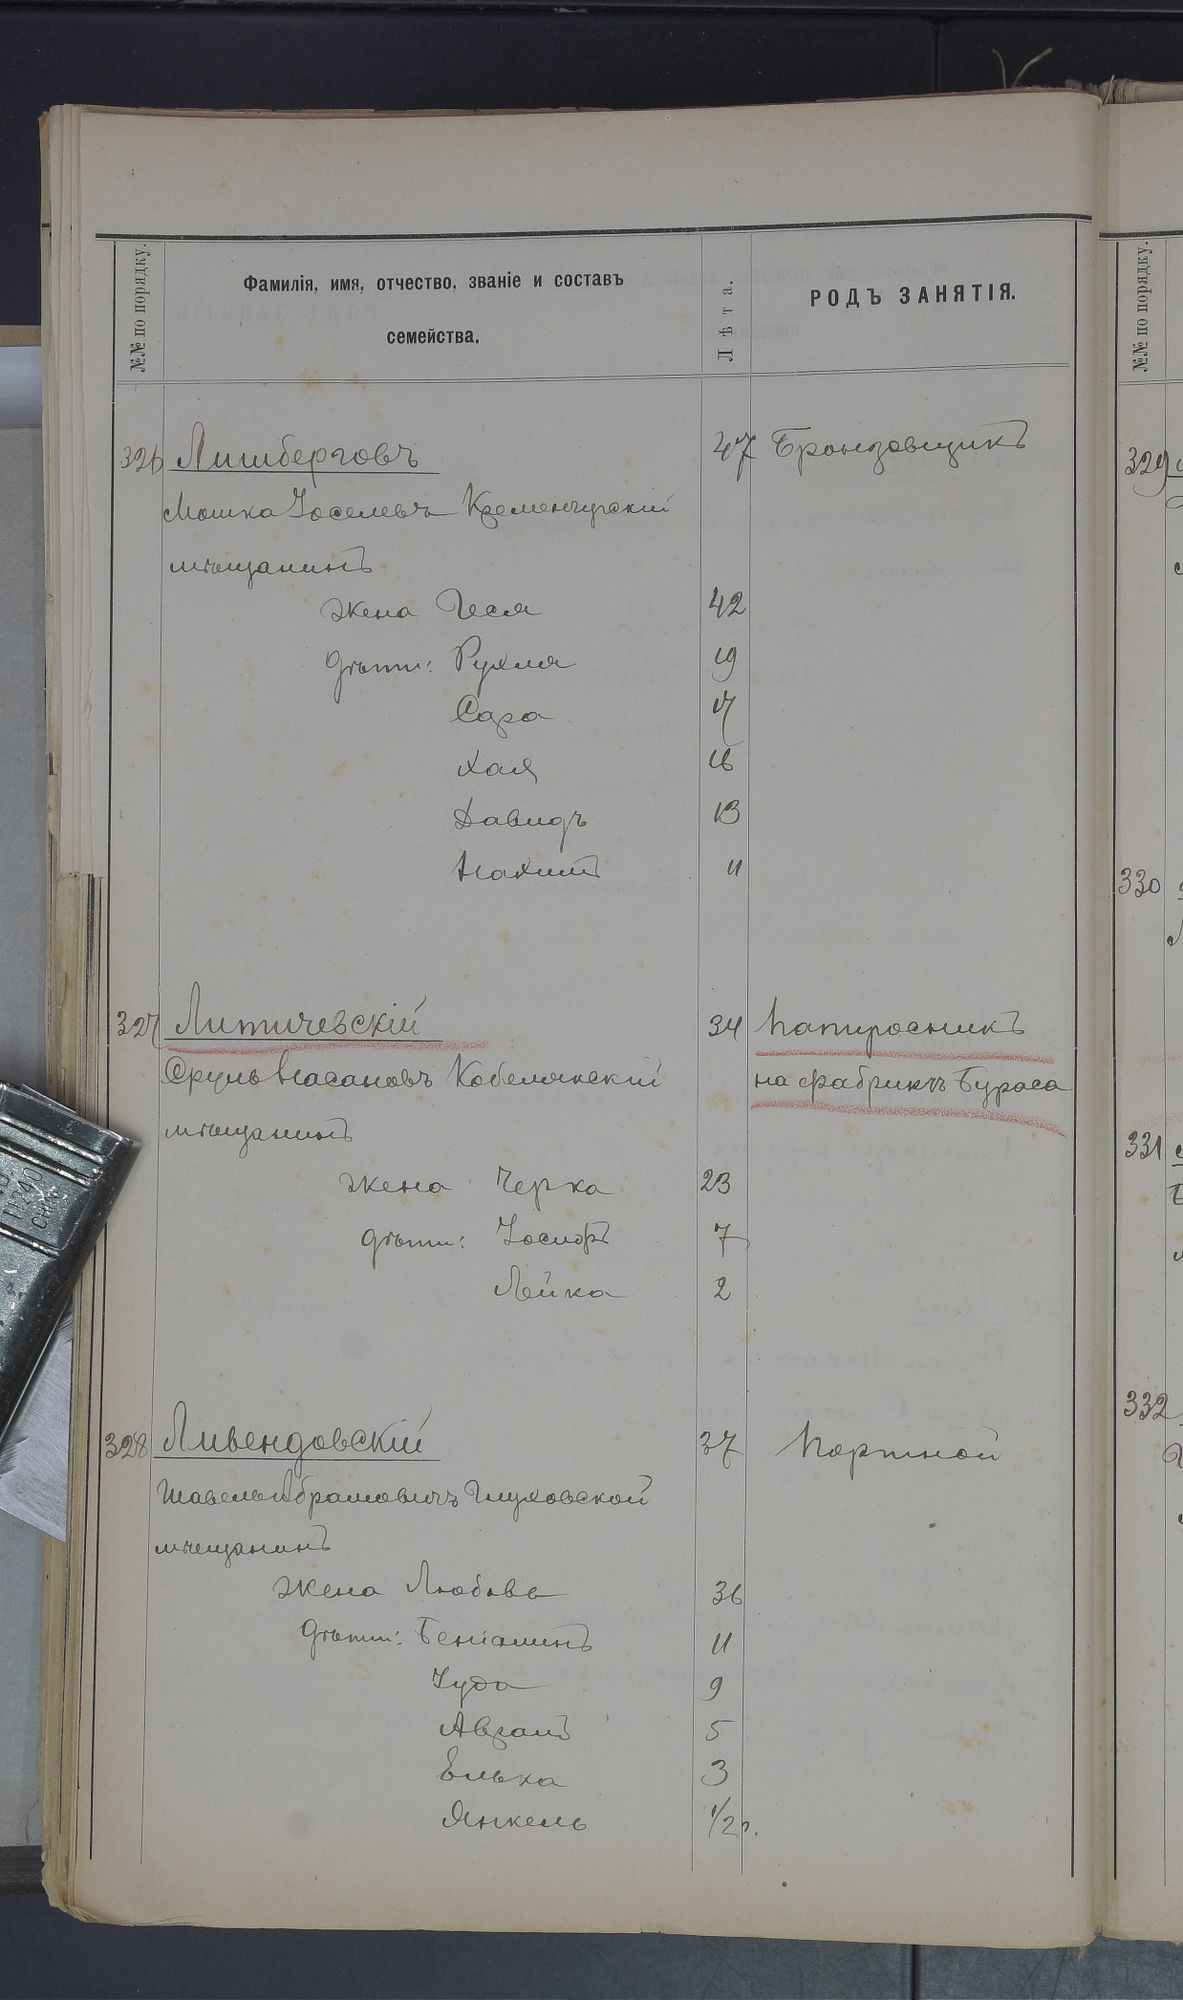 №№ по порядку.
Фамилія, имя, отчество, званіе и составъ
семейства.
Лѣта.
РОДЪ ЗАНЯТІЯ.
№№ по порядку.
326 Лишберговъ 47 Бронзовщикъ
Мошка Іоселевъ Кременчугскій
мѣщанинъ
жена Песя 42
дѣти: Рухля 19
Сара 17
Хая 16
Давидъ 13
Нахимъ 11
327 Литичевскій 34 Папиросникъ
Сруль Насановъ Кобелякскій на фабрикѣ Бураса
мѣщанинъ
жена Черка 23
дѣти: Іосифъ 7
Лейка 2
328 Ливендовскій 37 Портной
Шавель Абрамовичъ Глуховской
мѣщанинъ
жена Любовь 36
дѣти: Беніаминъ 11
Іуда 9
Аврамъ 5
Елька 3
Янкель 1/2 г.
329
330
331
332